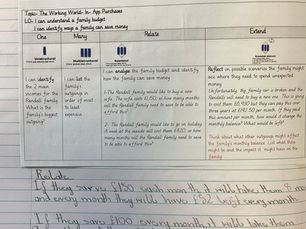 Topic- The Working World- In- App Purchases
LO- I can understand a family budget
I can identify ways a family can save money
One
Many
Relate
Extend
Unistructural
Multistructural
Relational
I can identify
the 2 main
incomes for the
Randall family.
What is the
family's biggest
outgoing?
I can list the
family's
outgoings in
order of most
to least
expensive
I can analyse the family budget and identify
how the family can save money
1- The Randall family would like to buy a new
sofa. The sofa costs £1,150, so how many months
will the Randall family need to save to be able to
afford this?
2- The Randall family would like to go on holiday.
A week at the seaside will cost them £820, so how
many months will the Randall family need to save
to be able to afford this?
Reflect on possible scenarios the family might
see where they need to spend unexpected
money.
Unfortunately, the family car is broken and the
Randalls will need to buy a new one. This is going
to cost them £6,930 but they can pay this over
three years at £192.50 per month. If they paid
this amount per month, how would it change the
monthly balance? What would be left?
Think about what other outgoings might affect
the family's monthly balance. List what they
might be and the impact it might have on the
family.
Relate
If they save £150 each month it will take them 8 mo
and every month they will have £82 left every month
If they save £100 every month it will take them